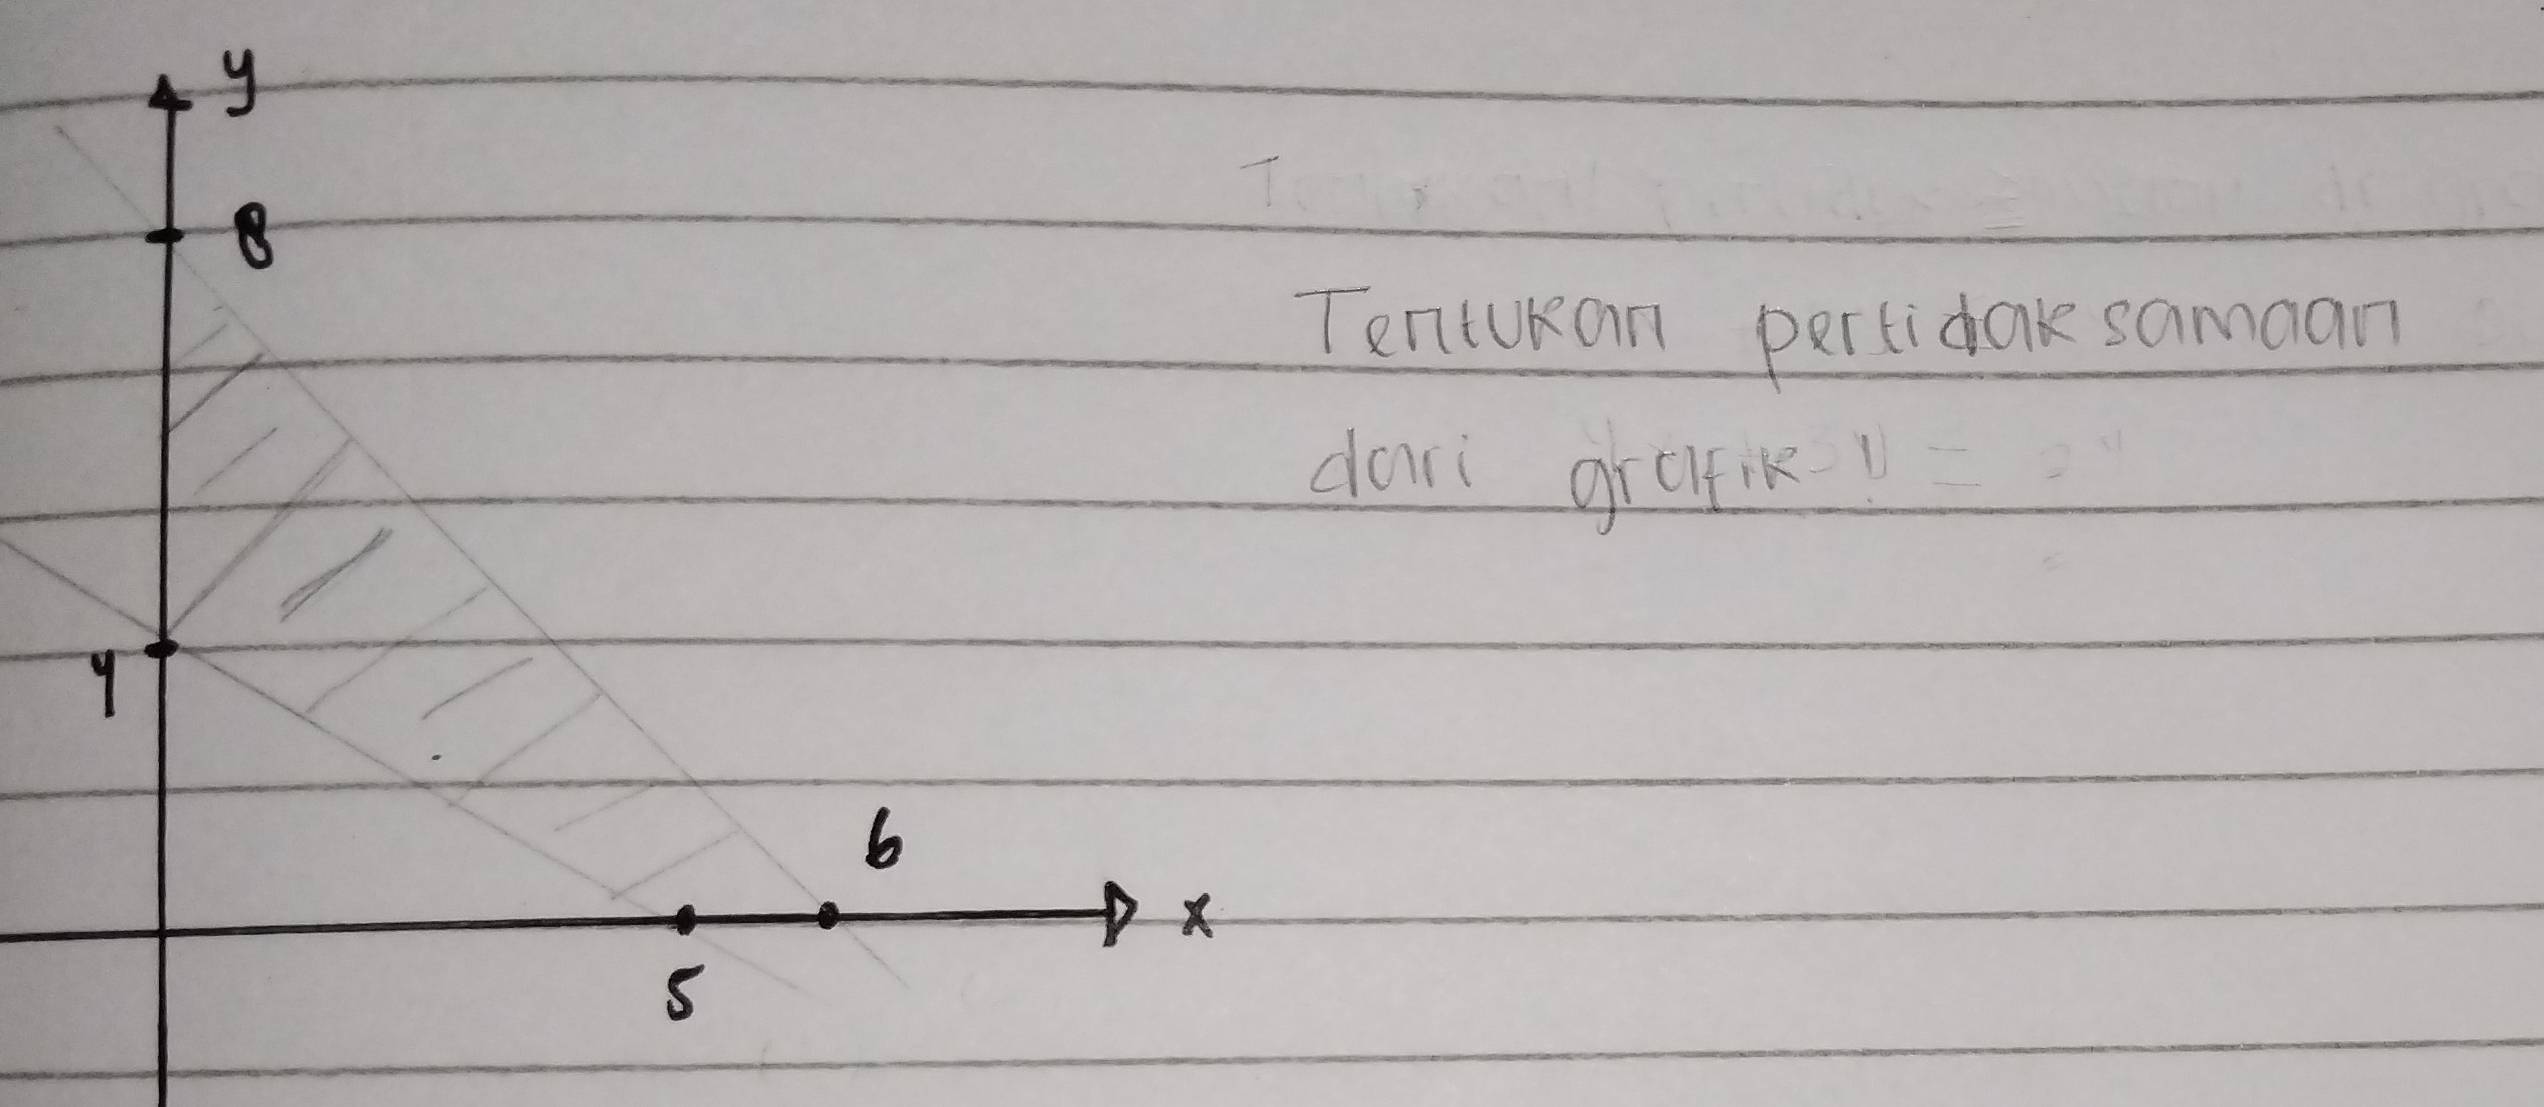 y
8
Tentukan pertidaksamaan
dari grafik !
4
6
x
5